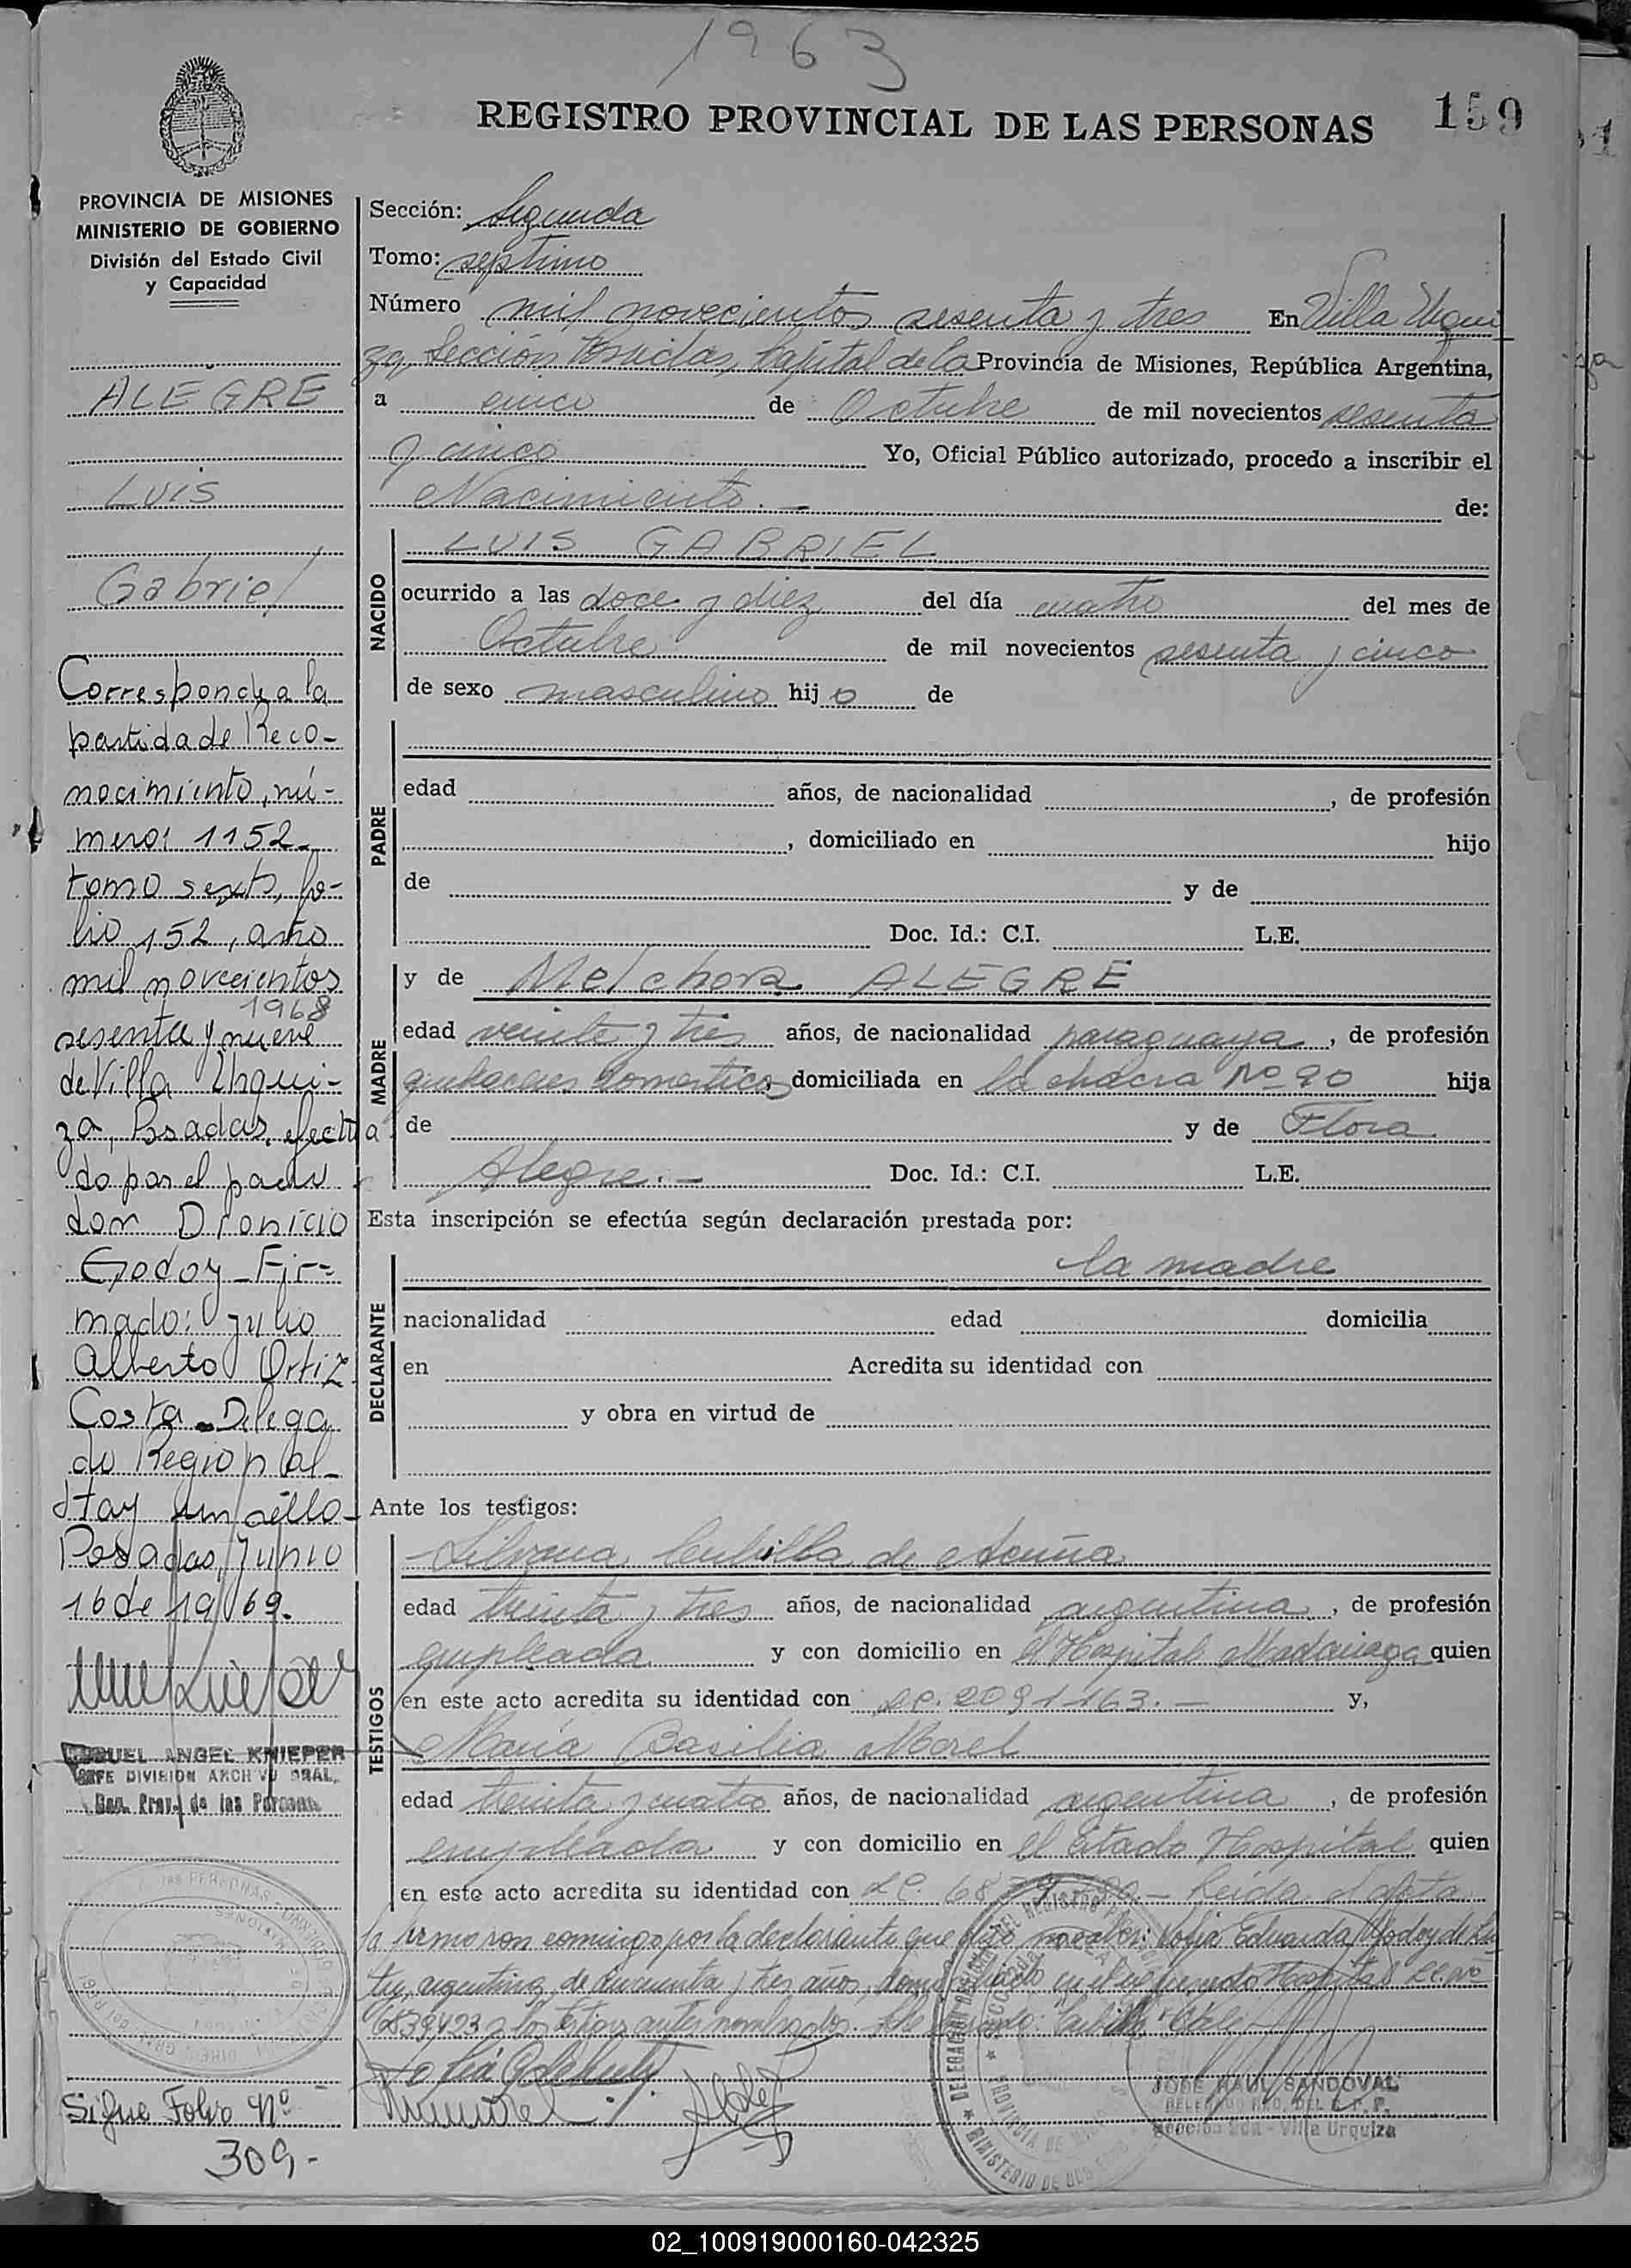 1963
REGISTRO PROVINCIAL DE LAS PERSONAS 159
PROVINCIA DE MISIONES
MINISTERIO DE GOBIERNO
División del Estado Civil
y Capacidad
ALEGRE
LUIS
Gabriel
Corresponde a la
partida de Reco-
nocimiento, nú-
mero: 1152-
tomo sexto, fo-
lio 152, año
mil novecientos
1968
sesenta y nueve
de Villa Urqui-
za, Posadas, efectua
do por el padre
don Dionicio
Godoy - Fir-
mado: Julio
Alberto Ortiz
Costa - Delega
do Regional -
Hay un sello -
Posadas, Junio
16 de 1969.
MIGUEL ANGEL KNIEPER
JEFE DIVISION ARCHIVO GRAL.
Reg. Prov. de las Personas
Sigue Folio Nº
309-
Sección: Segunda
Tomo: septimo
Número mil novecientos sesenta y tres En Villa Urqui
za, Sección Posadas, Capital de la Provincia de Misiones, República Argentina,
a cinco de Octubre de mil novecientos sesenta
y cinco Yo, Oficial Público autorizado, procedo a inscribir el
Nacimiento.- de:
NACIDO
LUIS GABRIEL
ocurrido a las doce y diez del día cuatro del mes de
Octubre de mil novecientos sesenta y cinco
de sexo masculino hijo de
PADRE
edad años, de nacionalidad , de profesión
, domiciliado en hijo
de y de
Doc. Id.: C.I. L.E.
MADRE
y de Melchora ALEGRE
edad veinte y tres años, de nacionalidad paraguaya, de profesión
quehaceres domesticos domiciliada en la chacra Nº 90 hija
de y de Flora
Alegre.- Doc. Id.: C.I. L.E.
Esta inscripción se efectúa según declaración prestada por:
DECLARANTE
la madre
nacionalidad edad domicilia
en Acredita su identidad con
y obra en virtud de
Ante los testigos:
TESTIGOS
Silvana Cubilla de Acuña
edad treinta y tres años, de nacionalidad argentina, de profesión
empleada y con domicilio en el Hospital Madariaga quien
en este acto acredita su identidad con LC. 2091163.- y,
María Basilia Morel
edad treinta y cuatro años, de nacionalidad argentina, de profesión
empleada y con domicilio en el citado Hospital quien
en este acto acredita su identidad con LC. Leída el acta
la firmaron conmigo por la declarante que dijo no saber: Sofía Eduarda Godoy de
argentina, de cincuenta y tres años, en el Hospital
6839423 y los testigos antes nombrados.
JOSE RAUL SANDOVAL
Sección 2da - Villa Urquiza
02_100919000160-042325